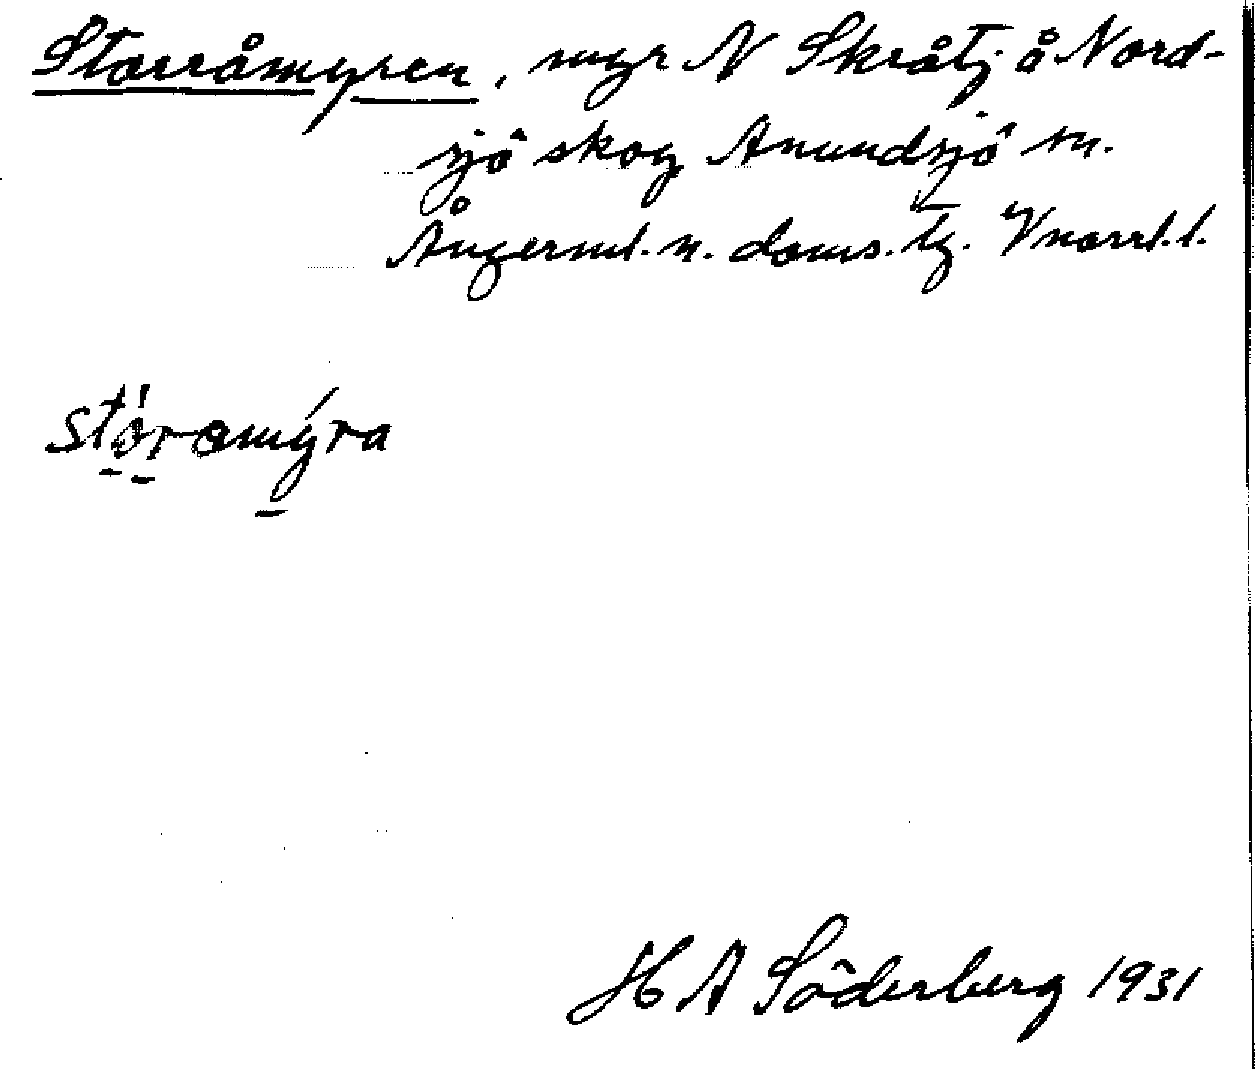 Storråmyren, myr N Skråtj. å Nord-
sjö skog Anundsjö sn.
Ångerml. n. doms. tg. Vnorrl. l.
storamyra
H A Söderberg 1931